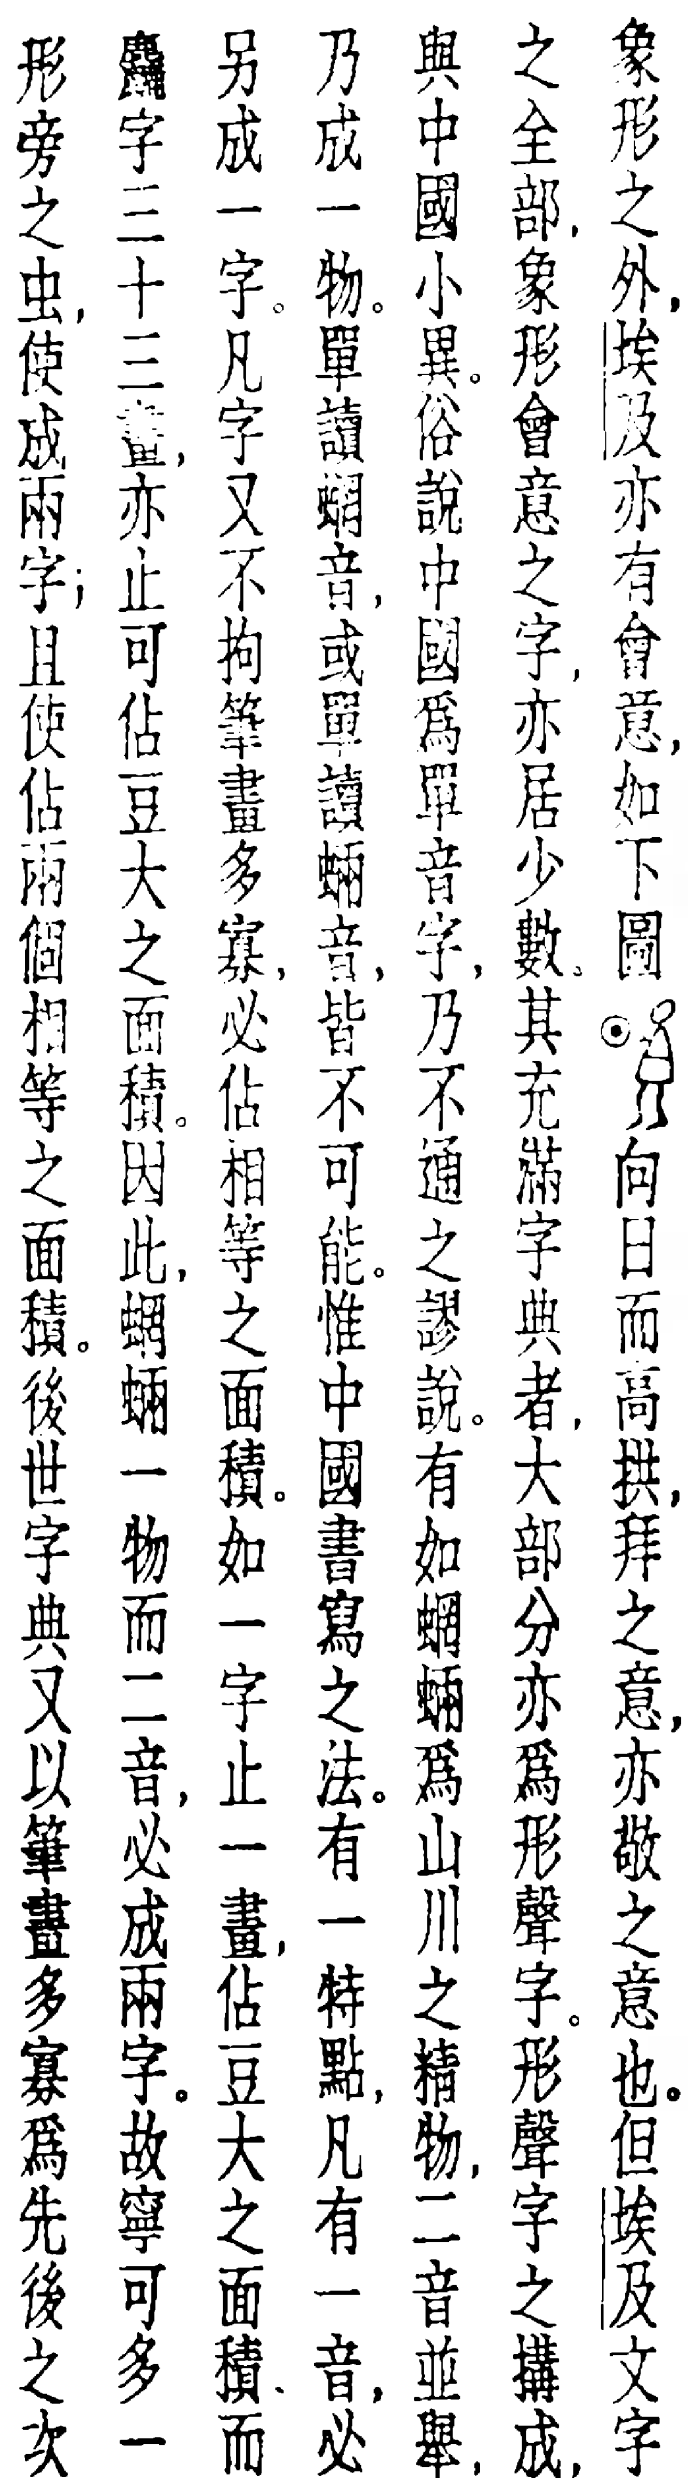 象形之外,埃及亦有會意,如下圖向日而高拱,拜之意,亦敬之意也。但埃及文字
之全部,象形會意之字,亦居少數。其充滿字典者,大部分亦爲形聲字。形聲字之構成,
與中國小異。俗說中國爲單音字,乃不通之謬說。有如蝄蜽爲山川之精物,二音並舉,
乃成一物。單讀蝄音,或單讀蜽音,皆不可能。惟中國書寫之法。有一特點,凡有一音,必
另成一字。凡字又不拘筆畫多寡,必佔相等之面積。如一字止一畫,佔豆大之面積、而
麤字三十三畫,亦止可佔豆大之面積。因此,蝄蜽一物而二音,必成兩字。故寧可多一
形旁之虫,使成兩字;且使佔兩個相等之面積。後世字典又以筆畫多寡爲先後之次